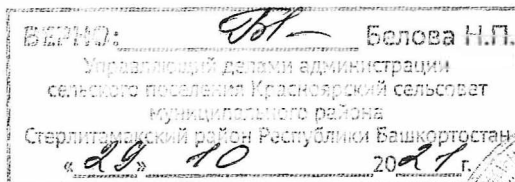 ВЕРНО: Белова Н.П.
Управляющий делами администрации
сельского поселения Красноярский сельсовет
муниципального района
Стерлитамакский район Республики Башкортостан
« 29 » 10 2021 г.